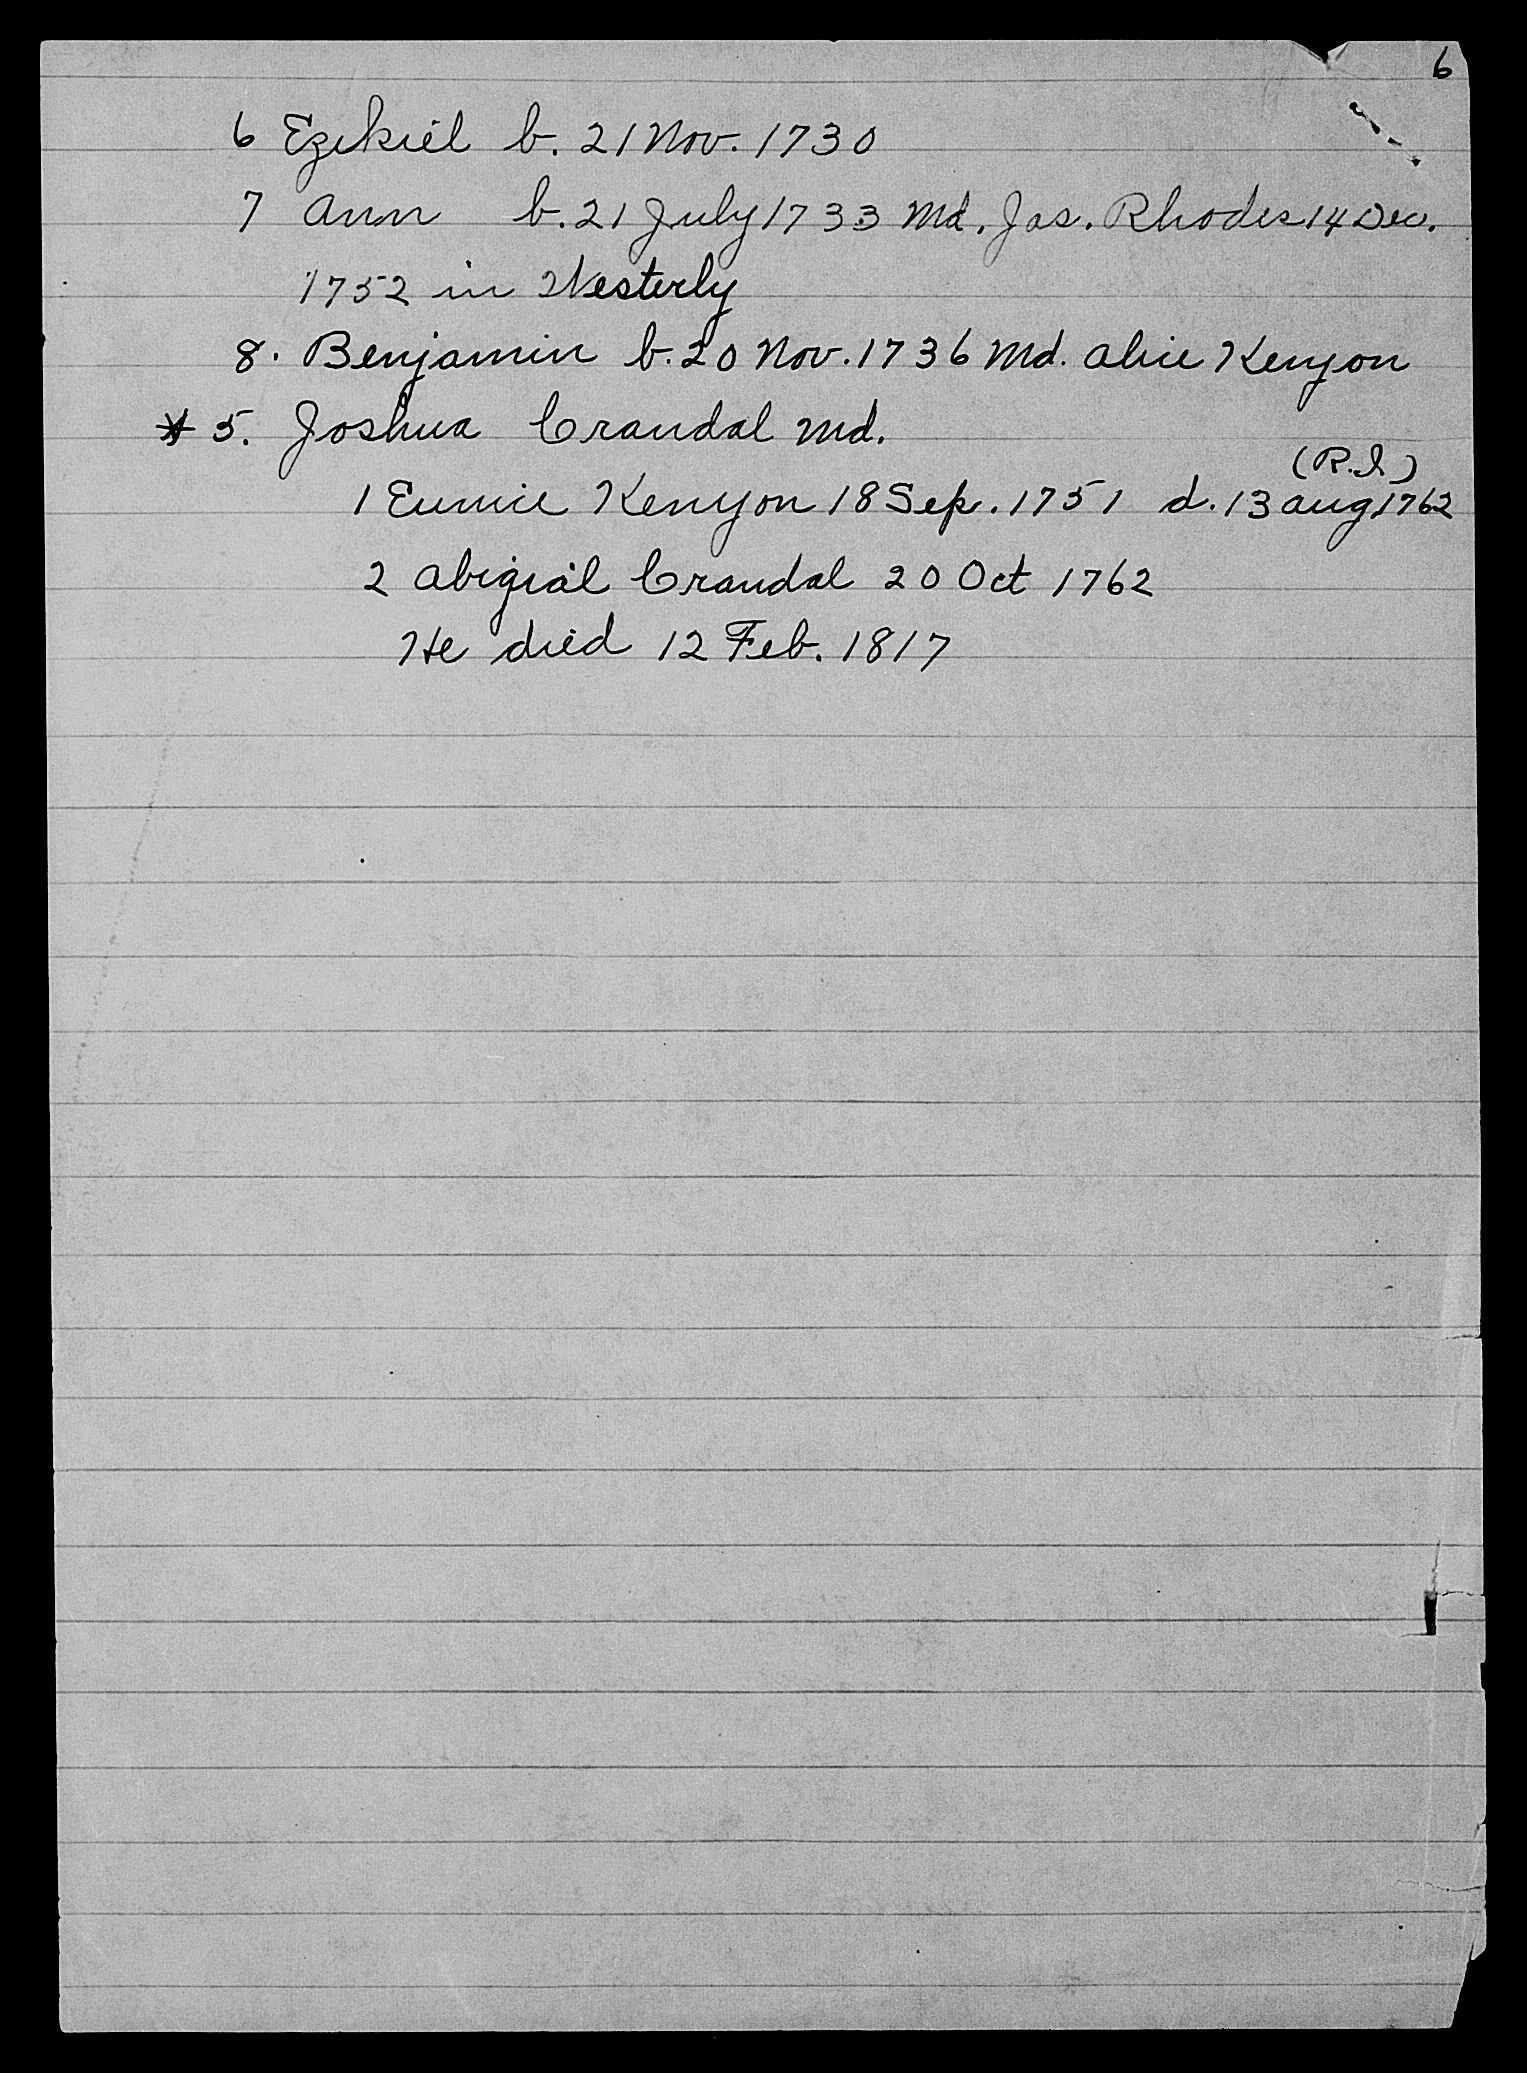 6
6 Ezekiel b. 21 Nov. 1730
7 Ann b. 21 July 1733 Md. Jas. Rhodes 14 Dec.
1752 in Westerly
8. Benjamin b. 20 Nov. 1736 Md. Alice Kenyon
* 5. Joshua Crandal Md.
(R.I.)
1 Eunice Kenyon 18 Sep. 1751 d. 13 Aug 1762
2 Abigial Crandal 20 Oct 1762
He died 12 Feb. 1817